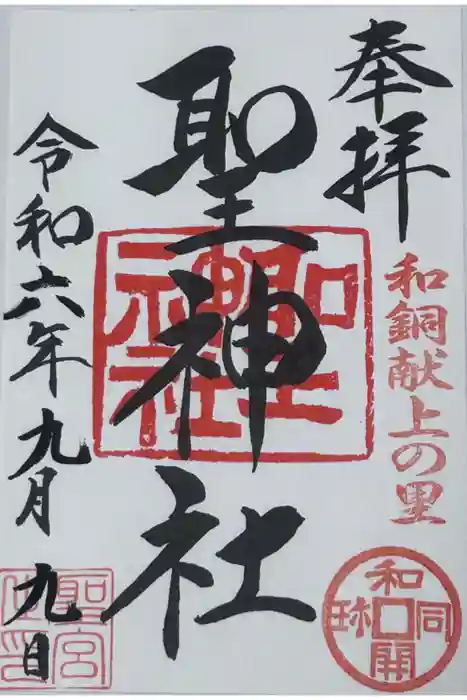 奉拝
和銅献上の里
和同開珎
聖神社
聖神社
令和六年九月九日